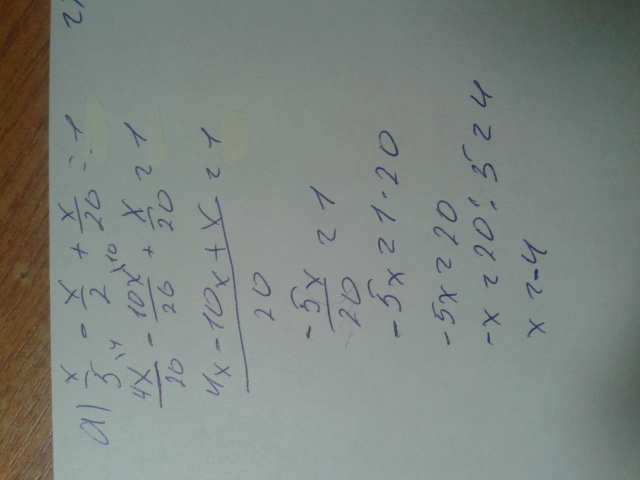 а) x/5 - x/2 + x/20 = 1
4x/20 - 10x/20 + x/20 = 1
4x - 10x + x / 20 = 1
-5x/20 = 1
-5x = 1·20
-5x = 20
-x = 20:5 = 4
x = -4